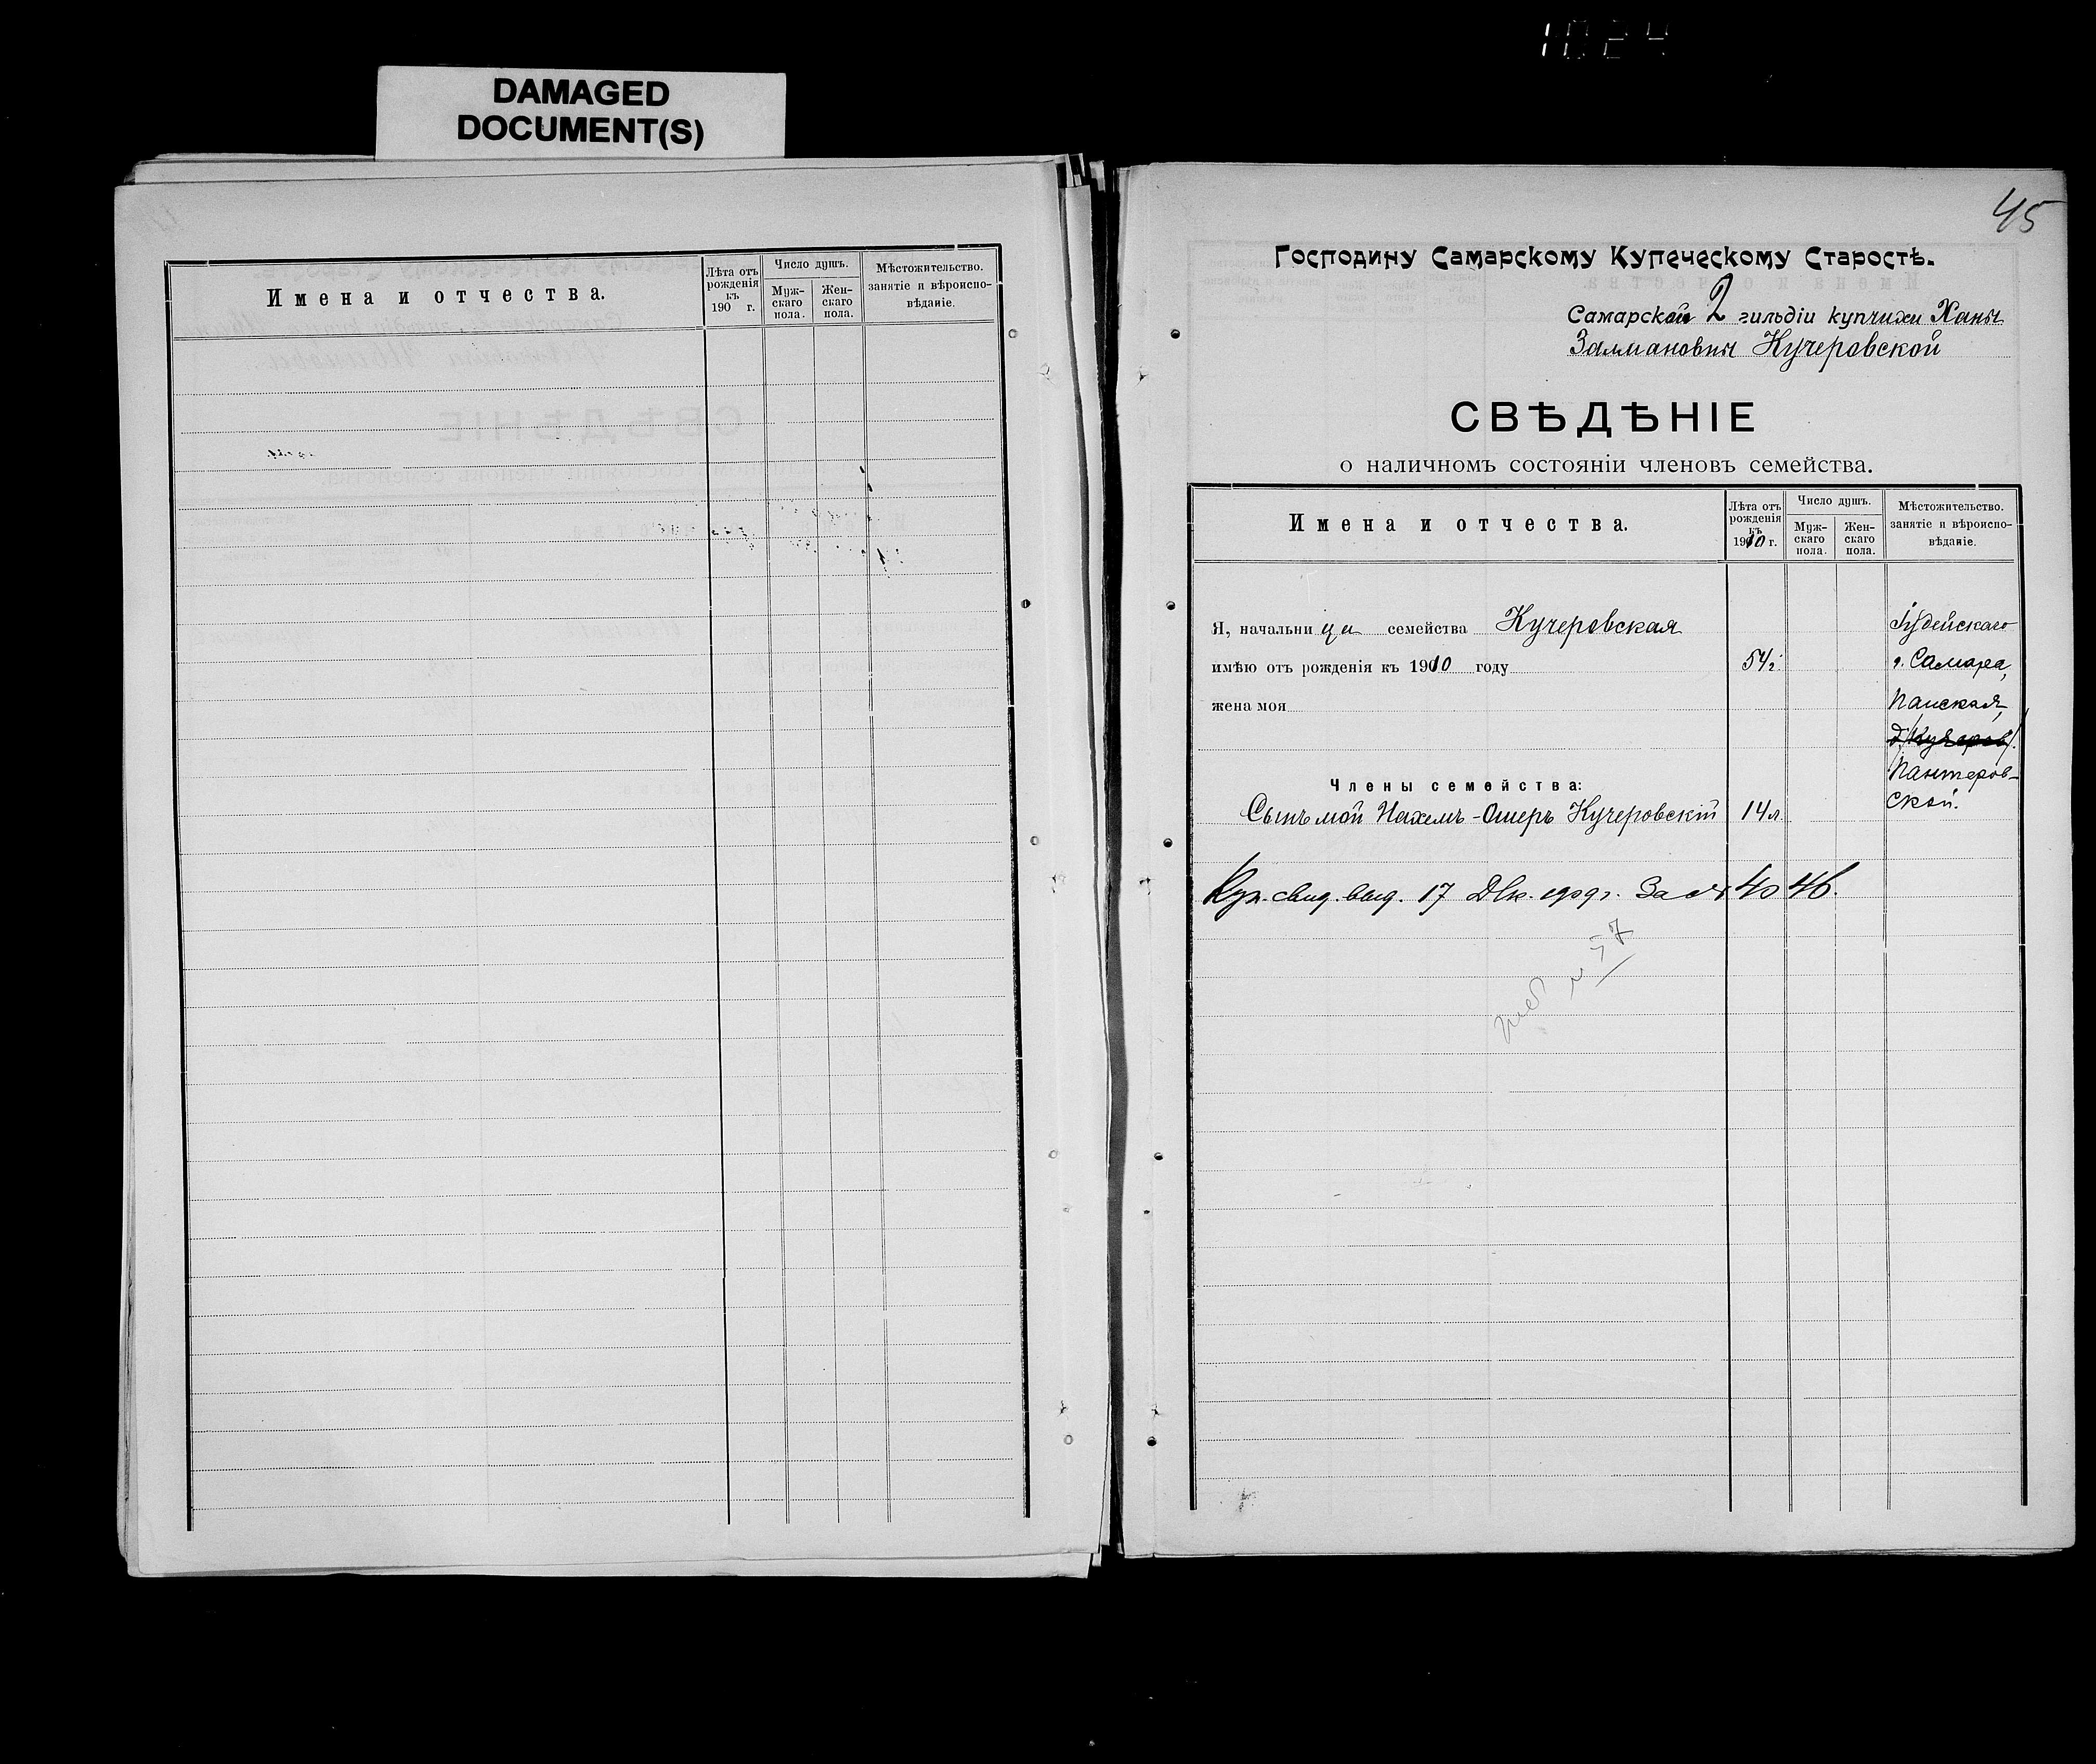 1024
DAMAGED
DOCUMENT(S)
Имена и отчества.
Лѣта отъ
рожденія
къ
190 г.
Число душъ.
Муж-
скаго
пола.
Жен-
скаго
пола.
Мѣстожительство.
занятіе и вѣроиспо-
вѣданіе.
45
Господину Самарскому Купеческому Старостѣ.
Самарской 2 гильдіи купчихи Ханы
Залмановны Кучеровской
СВѢДѢНІЕ
о наличномъ состояніи членовъ семейства.
Имена и отчества.
Лѣта отъ
рожденія
къ
1910 г.
Число душъ.
Муж-
скаго
пола.
Жен-
скаго
пола.
Мѣстожительство.
занятіе и вѣроиспо-
вѣданіе.
Я, начальница семейства Кучеровская
Іудейскаго
имѣю отъ рожденія къ 1910 году 54 г.
г. Самара,
жена моя
Панская,
Пантеров-
Члены семейства:
ской.
Сынъ мой Нахемъ-Ошеръ Кучеровскій 14 л.
Куп. свид. выд. 17 Дек. 1909 г. За № 40 46.
№ 57